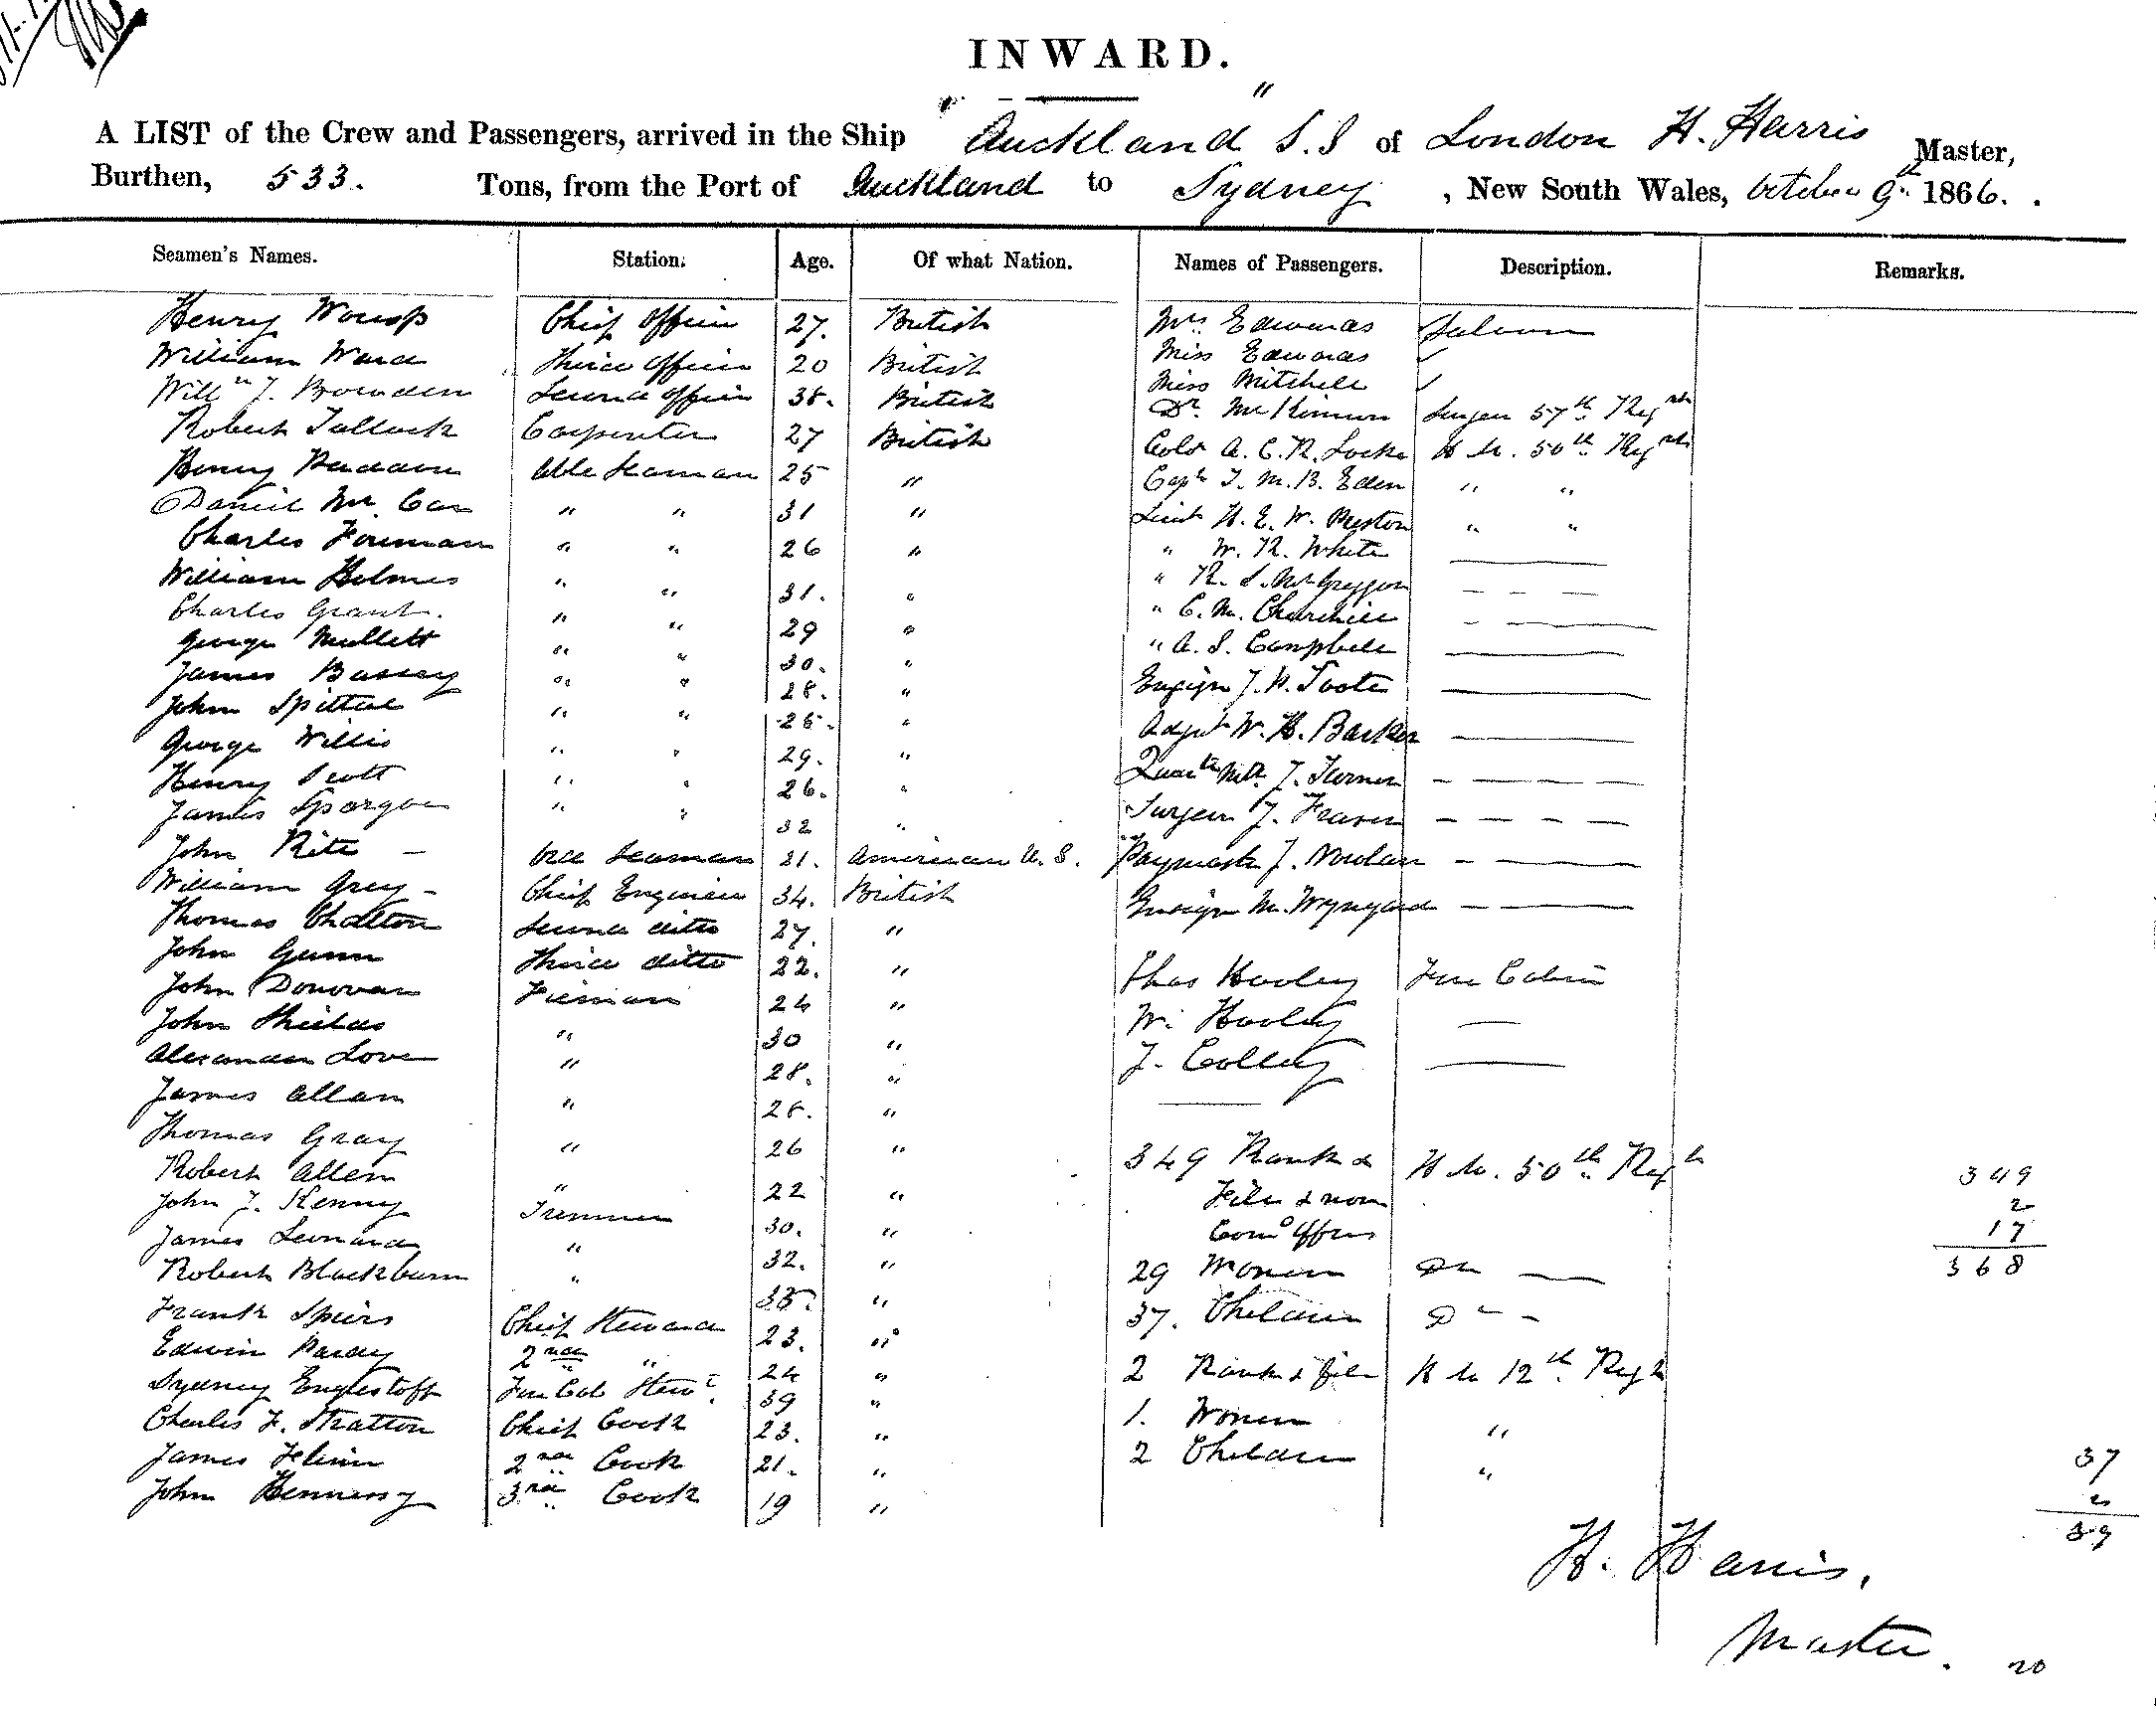 INWARD.
A LIST of the Crew and Passengers, arrived in the Ship Auckland " S.S of London H. Harris Master,
Burthen, 533. Tons, from the Port of Auckland to Sydney, New South Wales, October 9th 1866.
Seamen's Names. Station. Age. Of what Nation. Names of Passengers. Description. Remarks.
Henry Chief Officer 27. British Mrs Edwards Saloon
William Ward Third Officer 20 British Miss Edwards
Willm J. Bowden Second Officer 38. British Miss Mitchell
Robert Carpenter 27 British Dr McKinnon Surgeon 57th Regmt
Henry Able Seaman 25 " Colo A. C. R. Locke H M. 50th Regmt
Daniel " " 31 " Capt T. M. B. Eden " "
Charles Foreman " " 26 " Lieut H. E. W. Preston " "
William Holmes " " 31. " " W. R. White
Charles Grant. " " 29 " " R. S. McGreggor
George Mullett " " 30. " " C. M. Churchill
James Bassey " " 28. " " A. S. Campbell
John Spittal " " " Ensign J. H.
George Willis " " 29. " Adjut W. H. Barker
Henry Scott " " 26. " J. Turner
James Spargoe " " 32 " Surgeon J. Fraser
John Rite Seaman 21. American U. S. Paymaster J. Nowlan
William Grey Chief Engineer 34. British Ensign M. Wynyard
Thomas Chalton Second ditto 27. "
John Gunn Third ditto 22. " Chas Hooley Fore Cabin
John Donovan Fireman 24 " W. Hooley
John Shields " 30 " J. Colley
Alexander Love " 28. "
James Allan " "
Thomas Gray " 26 " 349 Rank & H M. 50th Regt 349
Robert Allen " 22 " File & non 2
John J. Kenny Trimmer 30. " Comd Offrs 17
James Leonard " 32. " 29 Women Do 368
Robert Blackburn " 35. " 37. Children Do
Frank Spiers Chief Steward 23. "
Edwin Pardy 2nd " 24 " 2 Rank & file H M 12th Regt
Sydney Englestoff Fore Cab Stewd. 39 " 1. Women "
Charles F. Stratton Chief Cook 23. " 2 Children "
James 2nd Cook 21. " 37
John Hennessy 3rd Cook 19 " 2
39
H. Harris,
Master.
20